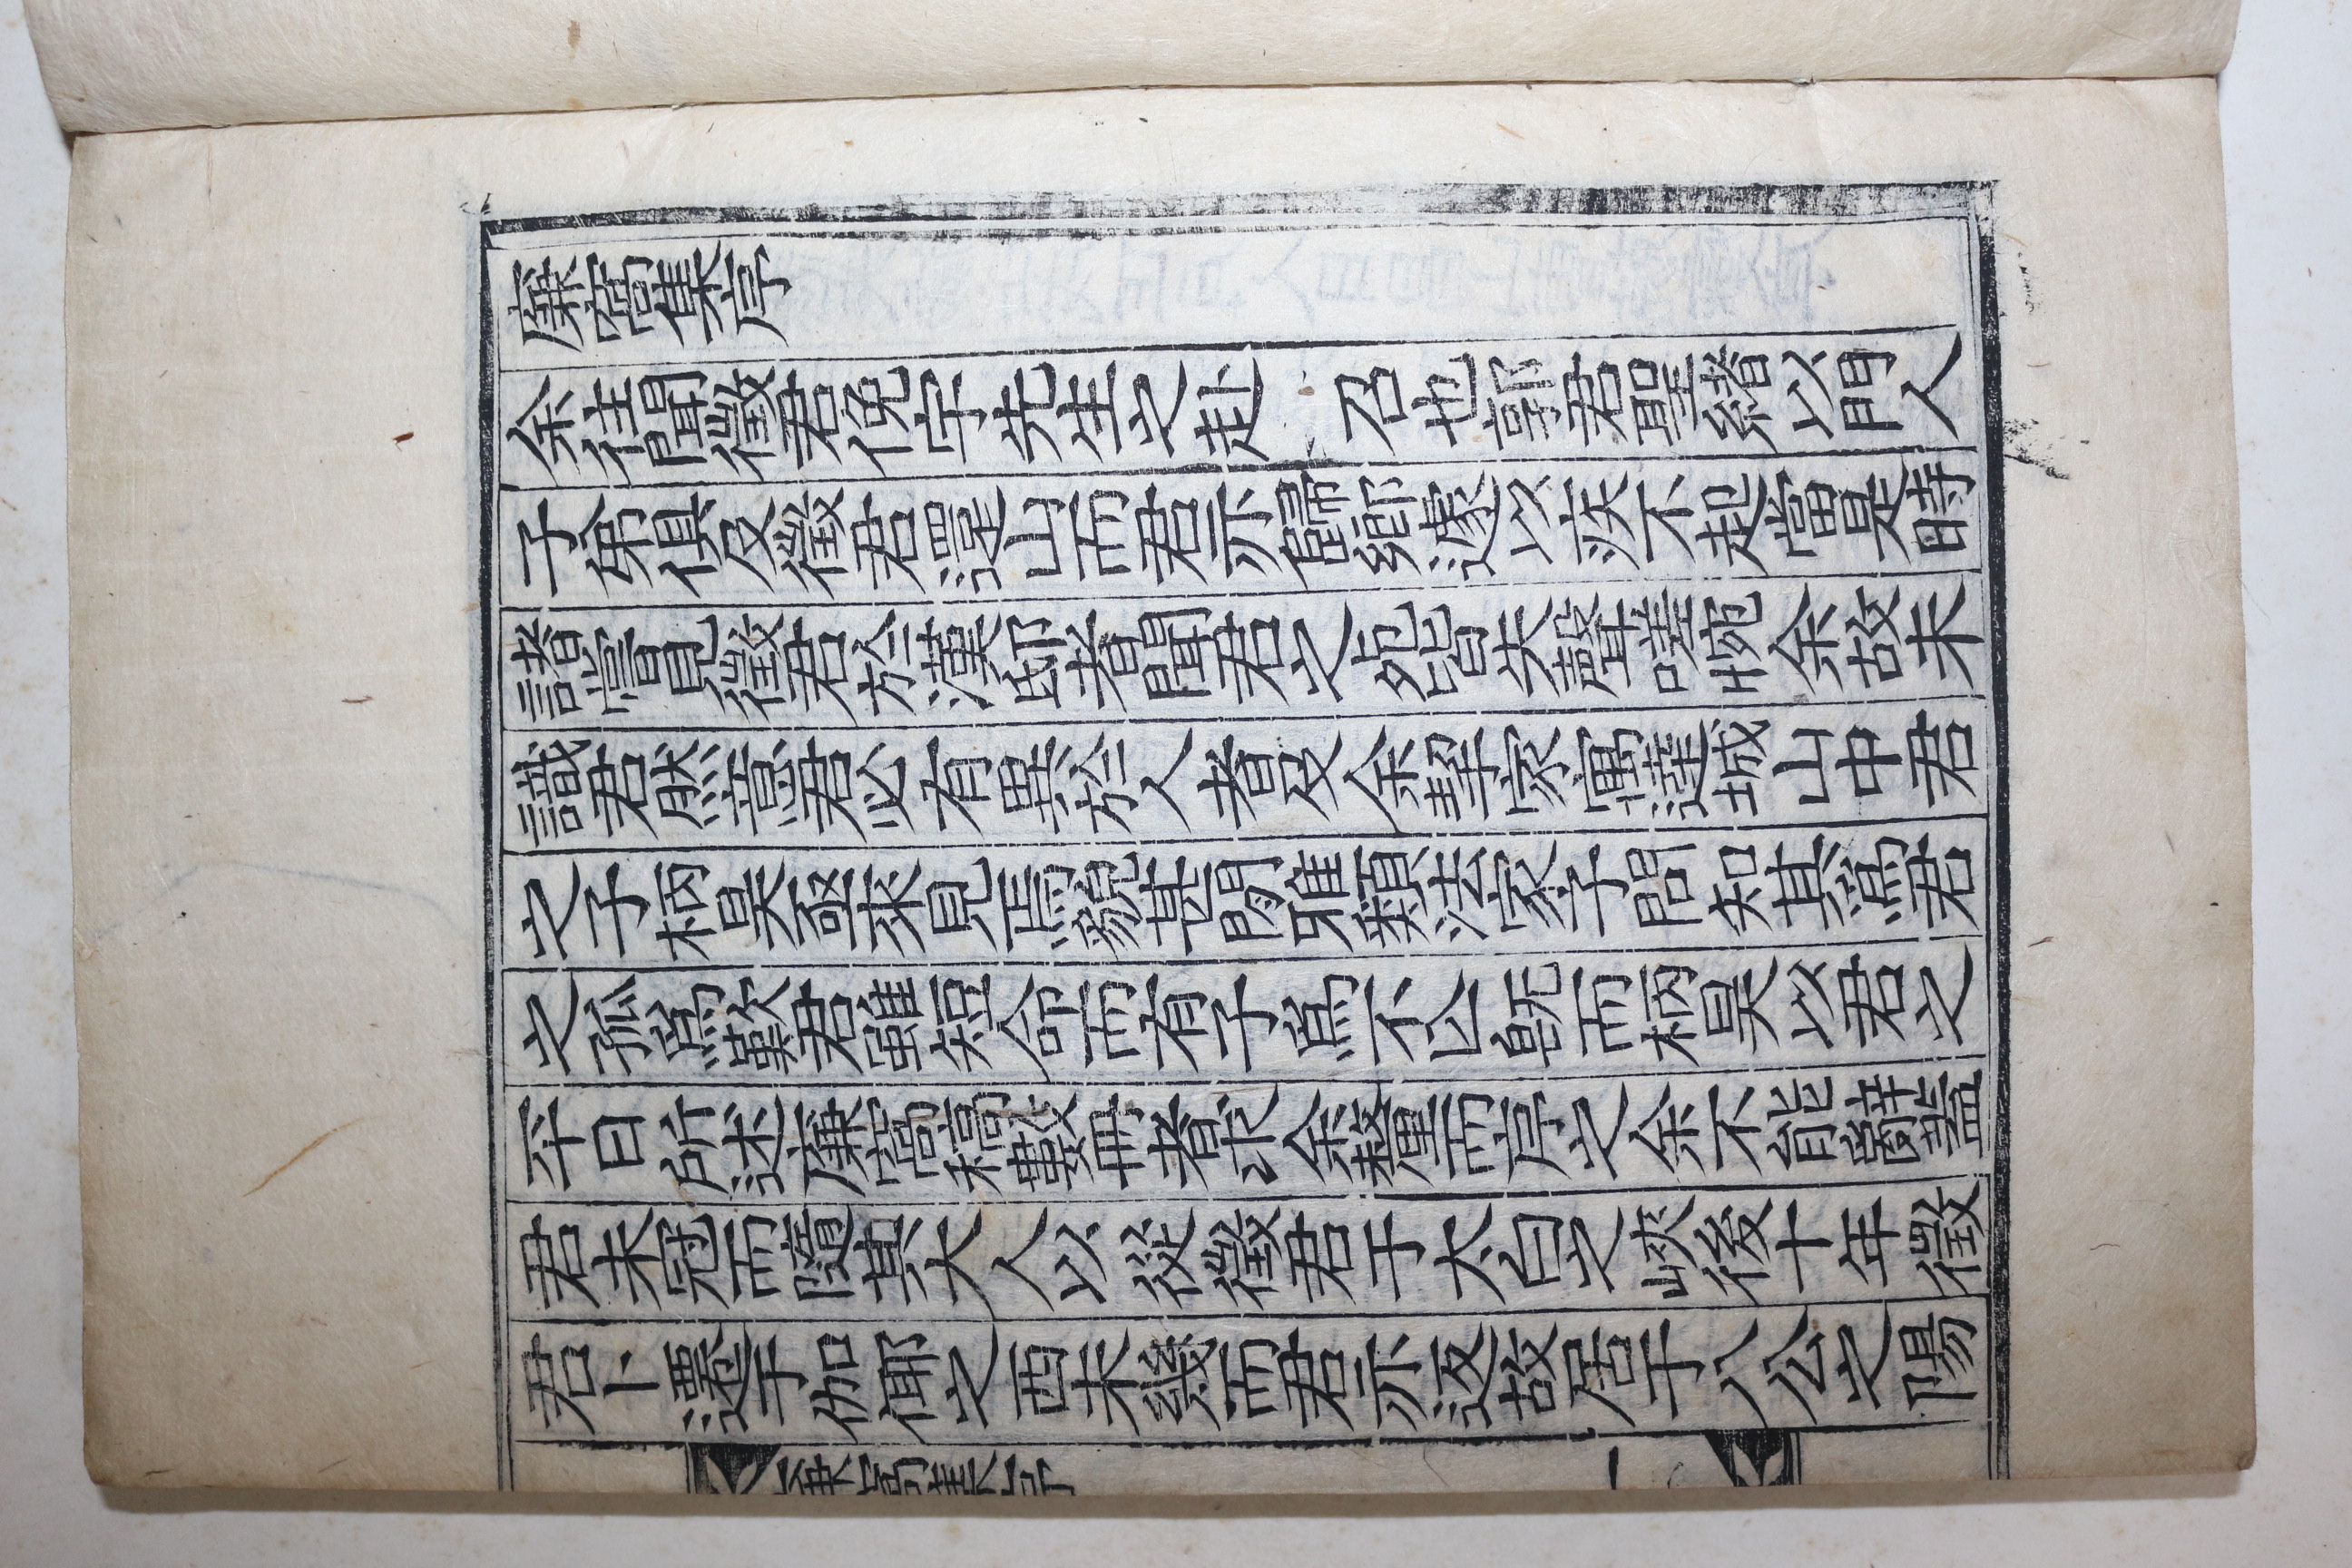 廉窩集序
余往聞徵君俛宇先生之赴　召也郭君聖緖以門人
子弟俱及徵君還山而君亦歸鄕遽以疾不起當是時
諸嘗見徵君於漢邸者聞君之死皆失聲嗟惋余故未
識君然意君必有異於人者及余挈家寓達城山中君
之子柄昊亟來見焉貌甚閒雅類法家子問知其爲君
之孤爲歎君雖短命而有子爲不亾旣而柄昊以君之
平日所述廉窩稿數冊者求余釐而序之余不能辭蓋
君未冠而隨其大人以從徵君于太白之峽後十年徵
君卜遷于伽倻之西未幾而君亦返故居于八公之陽
廉窩集序
一